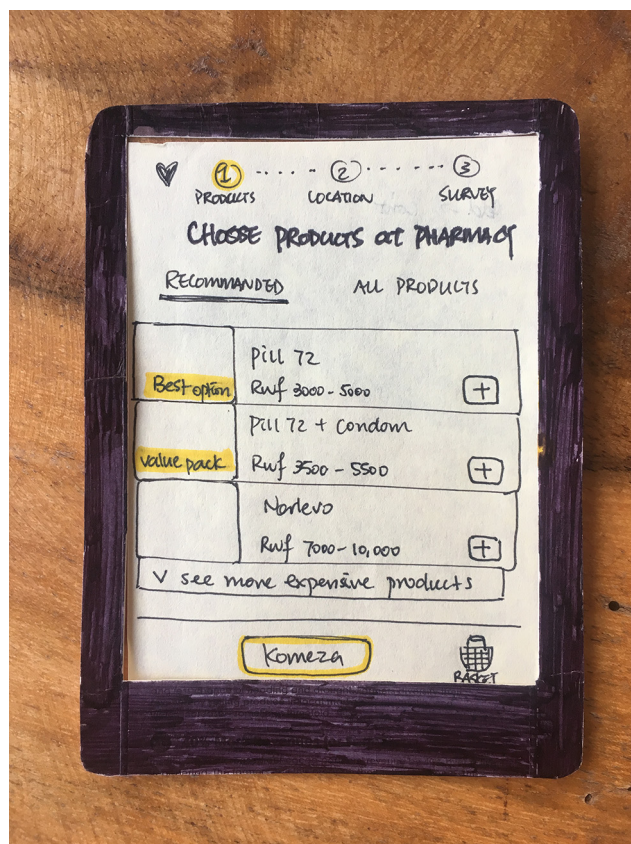 1 2 3
PRODUCTS LOCATION SURVEY
CHOSSE PRODUCTS at PHARMACY
RECOMMANDED ALL PRODUCTS
Pill 72
Best option Rwf 3000 - 5000 +
Pill 72 + Condom
value pack Rwf 3500 - 5500 +
Norlevo
Rwf 7000 - 10,000 +
V see more expensive products
Komeza
BASKET